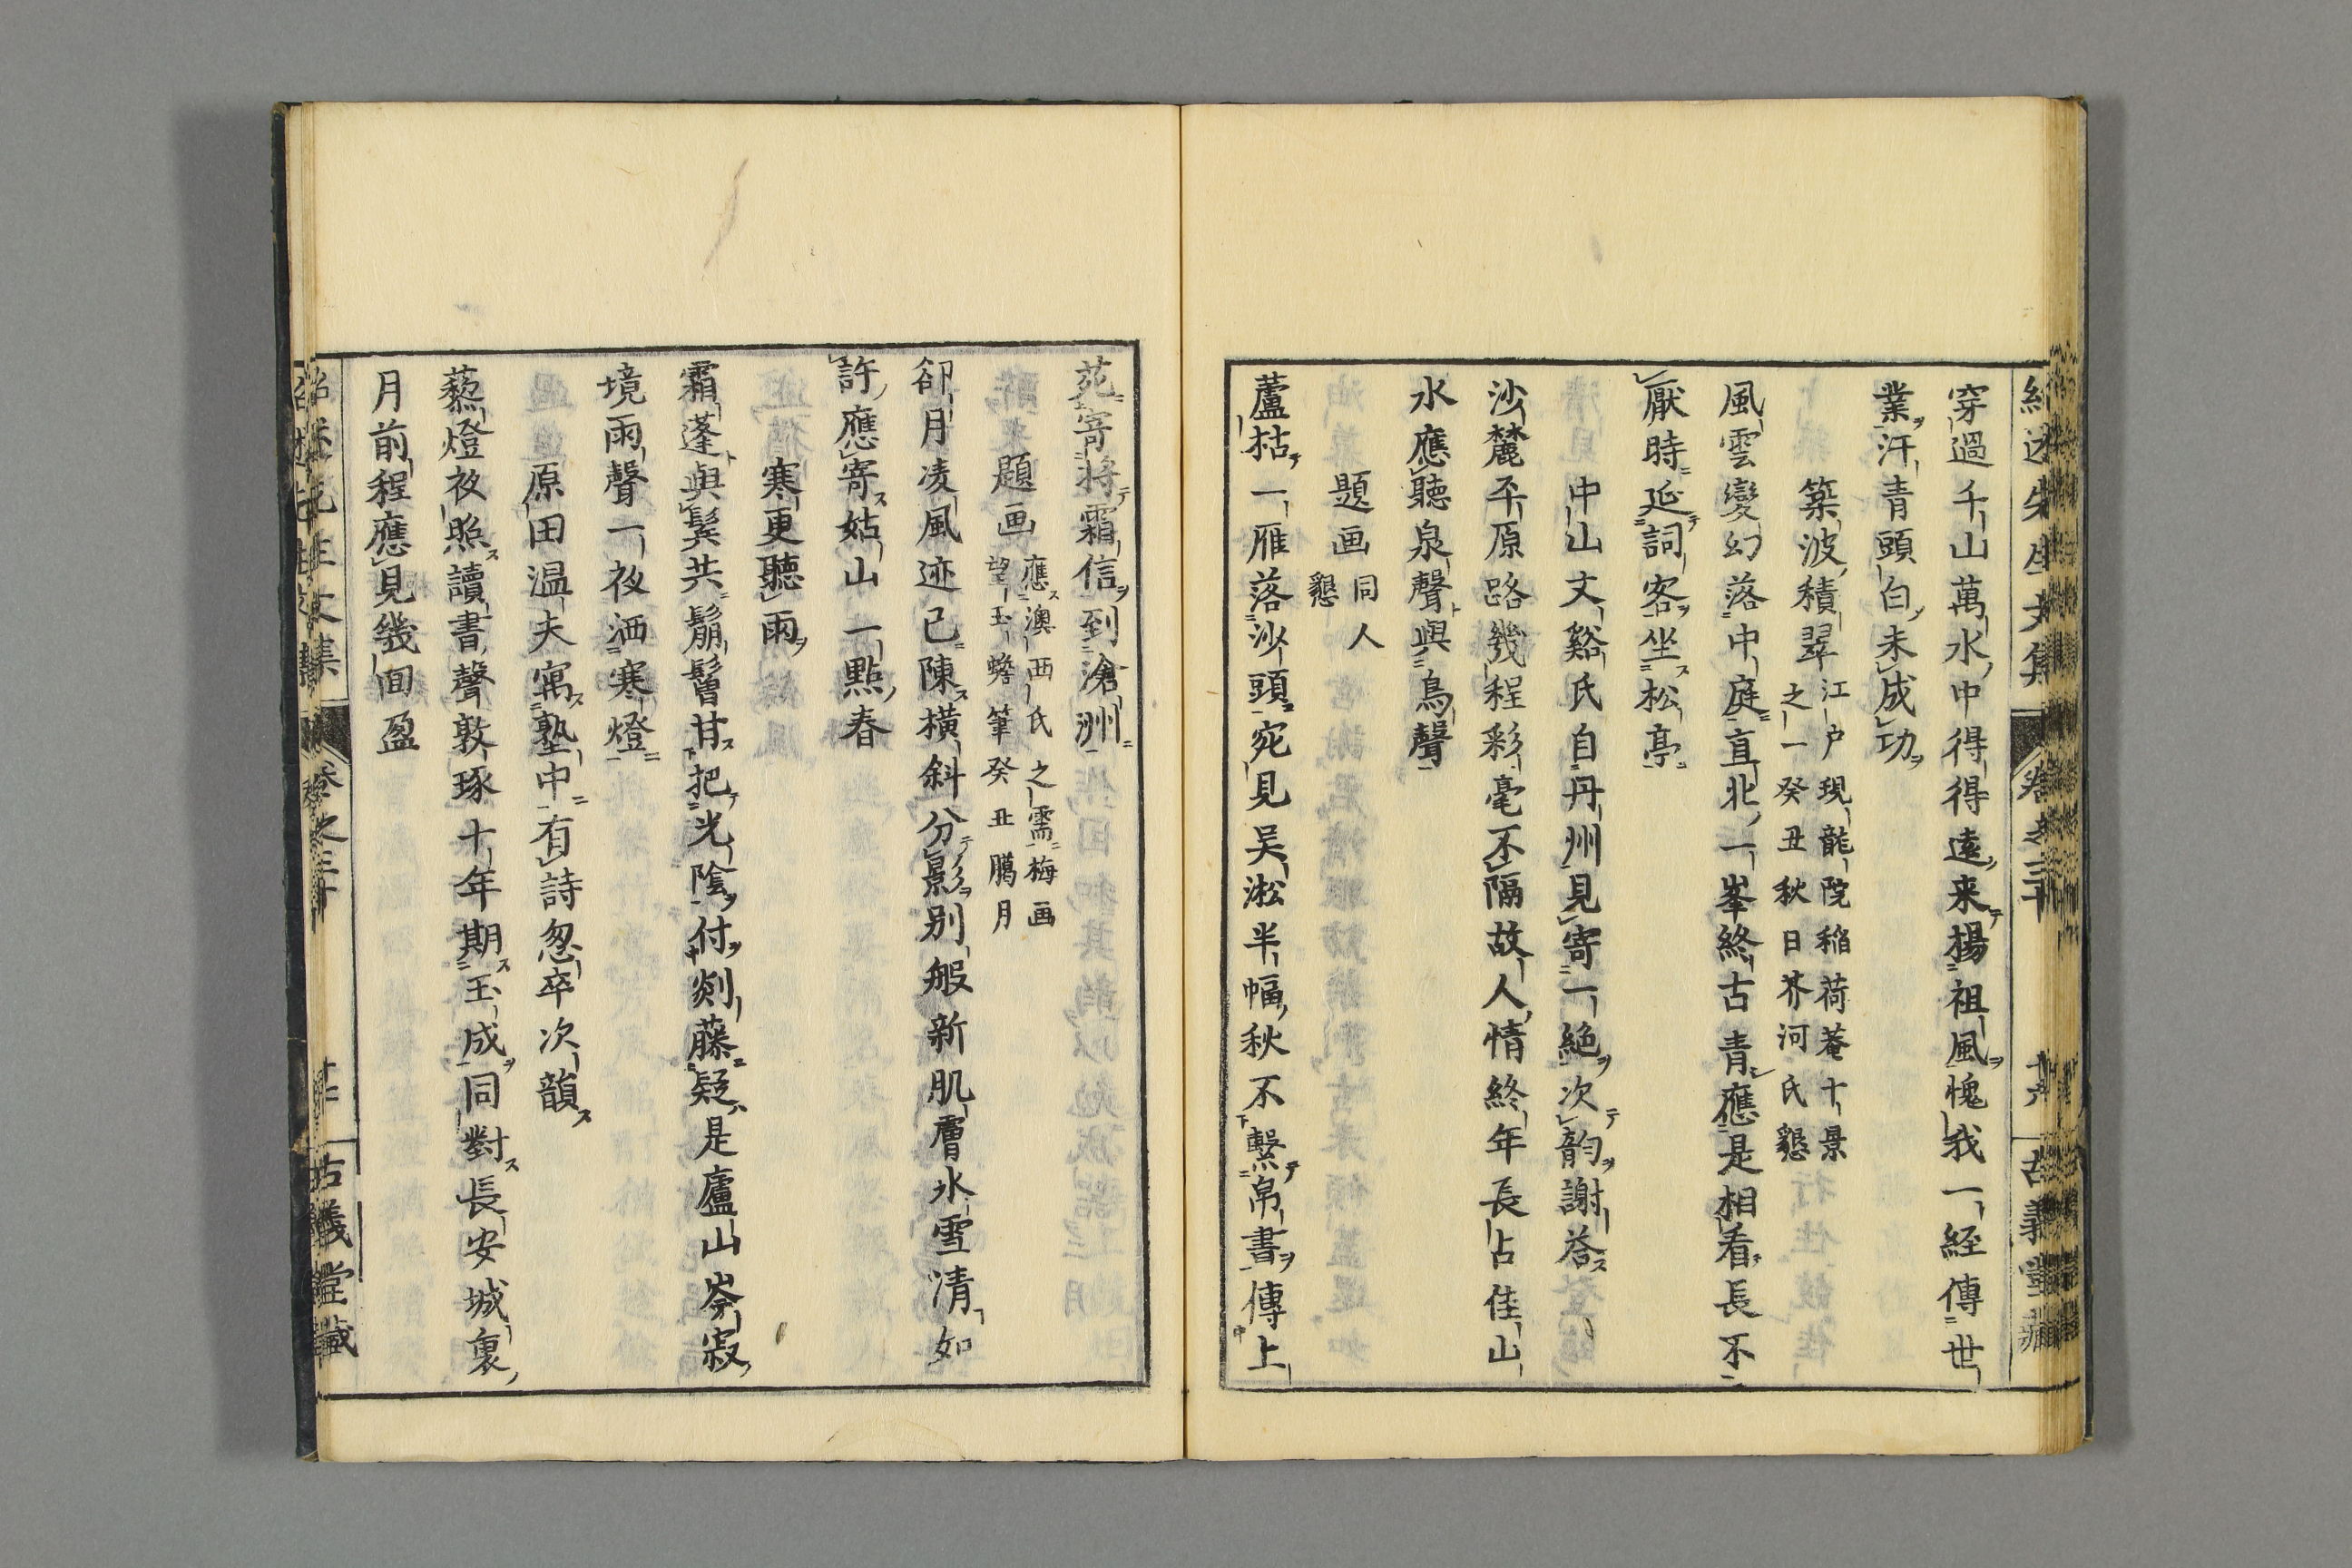 穿過千山萬水中得得遠来楊祖風愧我一経傳世
業汗青頭白未成功
築波積翠江戸現龍院稲荷菴十景
之一癸丑秋日芥河氏懇
風雲變幻落中庭直北一峯終古青應是相看長不
厭時延詞客坐松亭
中山文谿氏自丹州見寄一絶次韵謝答
沙麓平原路幾程彩毫不隔故人情終年長占佳山
水應聴泉聲與鳥聲
題画同人
懇
蘆枯一雁落沙頭宛見吴淞半幅秋不繋帛書傳上
苑寄将霜信到滄洲
題画應澳西氏之需梅画
望玉蟾筆癸丑臈月
卻月凌風迹已陳横斜分影別般新肌膚氷雪清如
許應寄姑山一點春
寒更聴雨
霜蓬與鬂共鬅鬙甘把光陰付剡藤疑是廬山岑寂
境雨聲一夜洒寒燈
原田温夫寓塾中有詩怱卒次韻
藜燈夜照讀書聲敦琢十年期玉成同對長安城裏
月前程應見幾回盈
巻之三十
古義堂藏